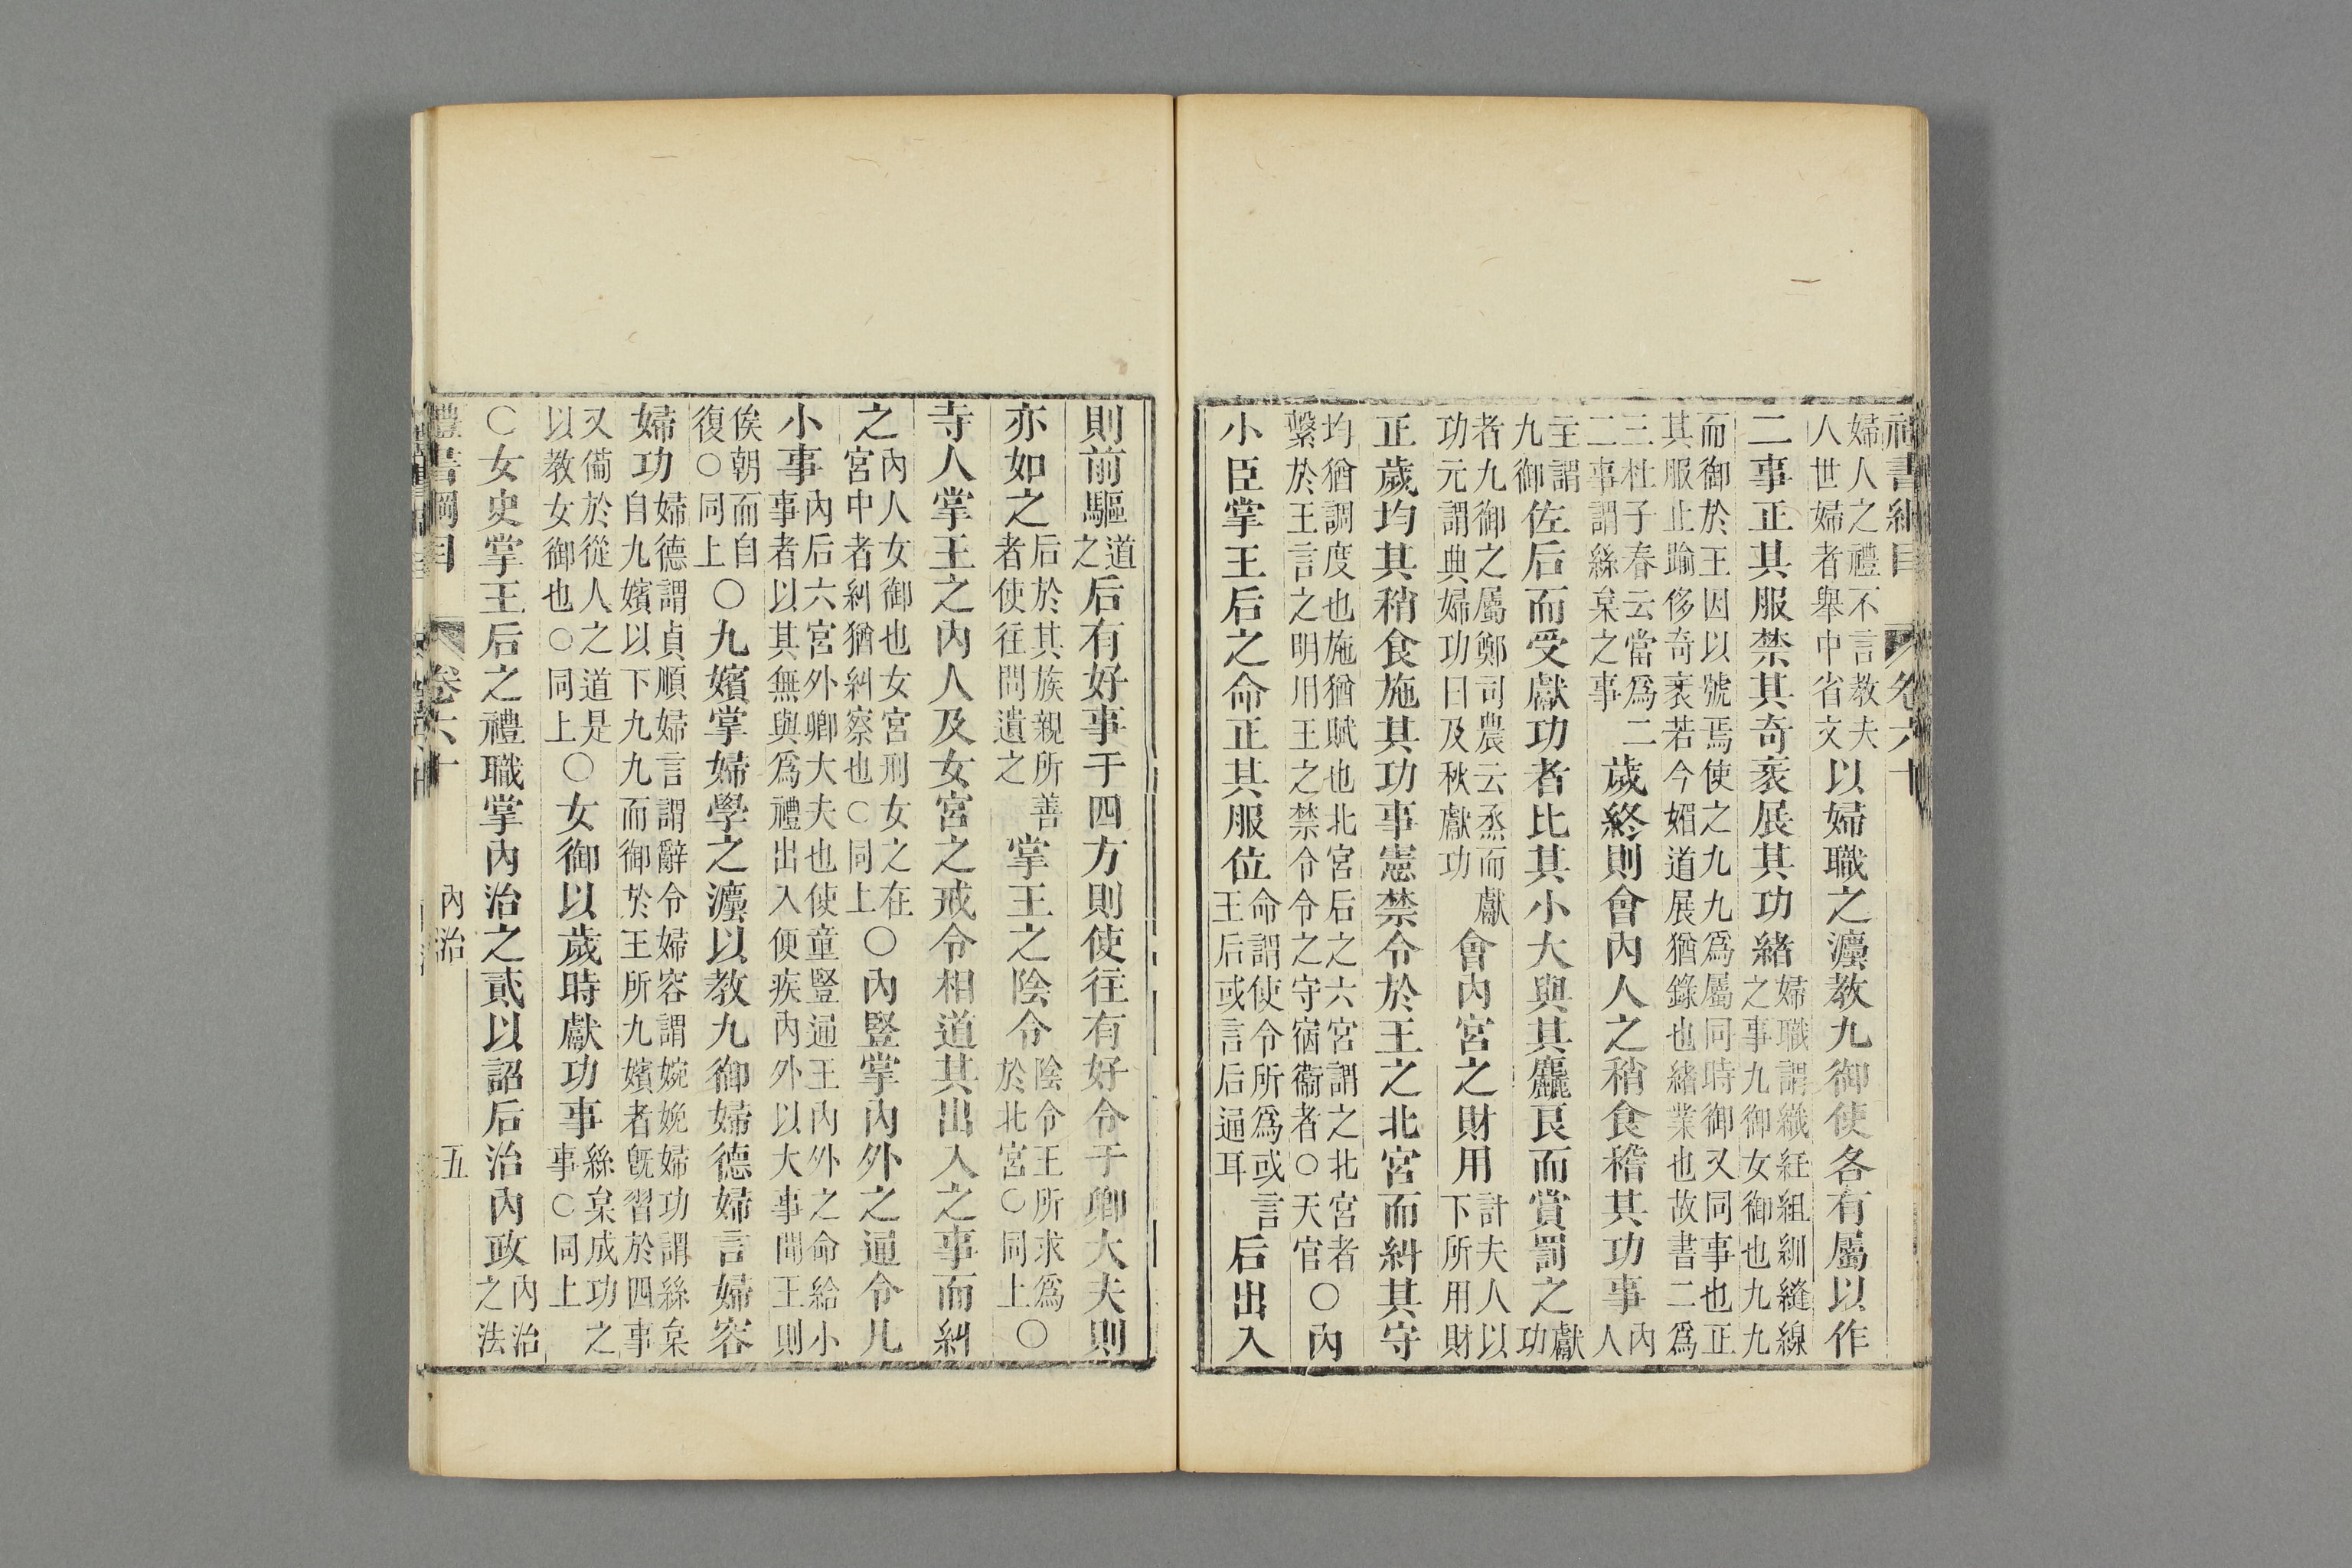 婦人之禮不言教夫人世婦者舉中省文以婦職之灋教九御使各有屬以作
二事正其服禁其奇衺展其功緒婦職謂織紝組紃縫線之事九御女御也九九
而御於王因以號焉使之九九爲屬同時御又同事也正其服止踰侈奇衺若今媚道展猶錄也緒業也故書二爲
三杜子春云當爲二二事謂絲枲之事歲終則會內人之稍食稽其功事內人
主謂九御佐后而受獻功者比其小大與其麤良而賞罰之獻功
者九御之屬鄭司農云烝而獻功元謂典婦功曰及秋獻功會內宮之財用計夫人以下所用財
正歲均其稍食施其功事憲禁令於王之北宮而糾其守
均猶調度也施猶賦也北宮后之六宮謂之北宮者繫於王言之明用王之禁令令之守宿衞者○天官○內
小臣掌王后之命正其服位命謂使令所爲或言王后或言后通耳后出入
則前驅道之后有好事于四方則使往有好令于卿大夫則
亦如之后於其族親所善者使往問遺之掌王之陰令陰令王所求爲於北宮○同上○
寺人掌王之內人及女宮之戒令相道其出入之事而糾
之內人女御也女宮刑女之在宮中者糾猶糾察也○同上○內豎掌內外之通令凡
小事內后六宮外卿大夫也使童豎通王內外之命給小事者以其無與爲禮出入便疾內外以大事聞王則
俟朝而自復○同上○九嬪掌婦學之灋以教九御婦德婦言婦容
婦功婦德謂貞順婦言謂辭令婦容謂婉娩婦功謂絲枲自九嬪以下九九而御於王所九嬪者旣習於四事
又備於從人之道是以教女御也○同上○女御以歲時獻功事絲枲成功之事○同上
○女史掌王后之禮職掌內治之貳以詔后治內政內治之法
禮書綱目 卷六十 內治 五